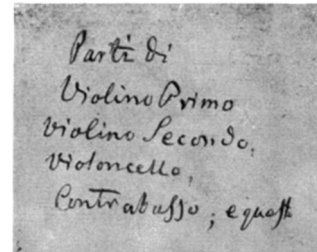 Parti di
Violino Primo
Violino Secondo,
Violoncello,
Contrabasso; e